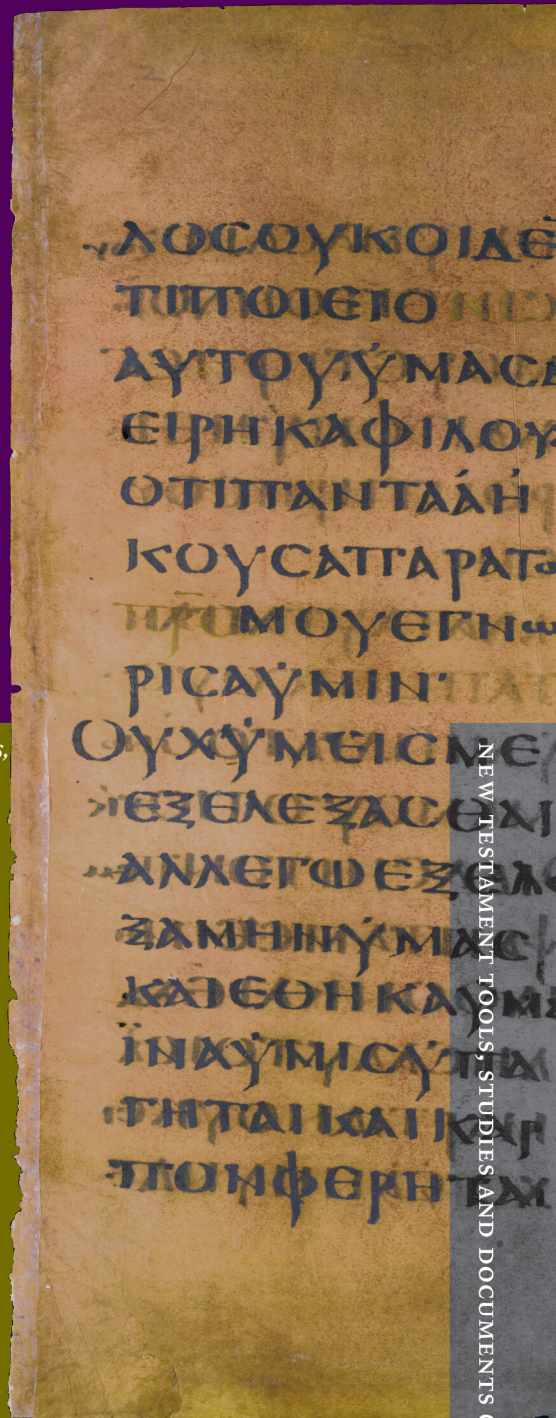 ΛΟCΟΥΚΟΙΔΕ
ΤΙΠΟΙΕΙΟ
ΑΥΤΟΥΫΜΑCΔ
ΕΙΡΗΚΑΦΙΛΟΥ
ΟΤΙΠΑΝΤΑΑΗ
ΚΟΥCΑΠΑΡΑΤΟ
ΜΟΥΕΓΝω
ΡΙCΑΫΜΙΝ·
ΟΥΧΫΜΕΙCΜΕ
ΕΞΕΛΕΞΑCΘΑΙ
ΑΛΛΕΓΩΕΞΕΛΕ
ΞΑΜΗΝΫΜΑC
ΚΑΙΕΘΗΚΑΫΜ
ΪΝΑΫΜΙCΫΠΑ
ΓΗΤΑΙΚΑΙΚΑΡ
ΠΟΝΦΕΡΗΤΑΙ
NEW TESTAMENT TOOLS, STUDIES AND DOCUMENTS